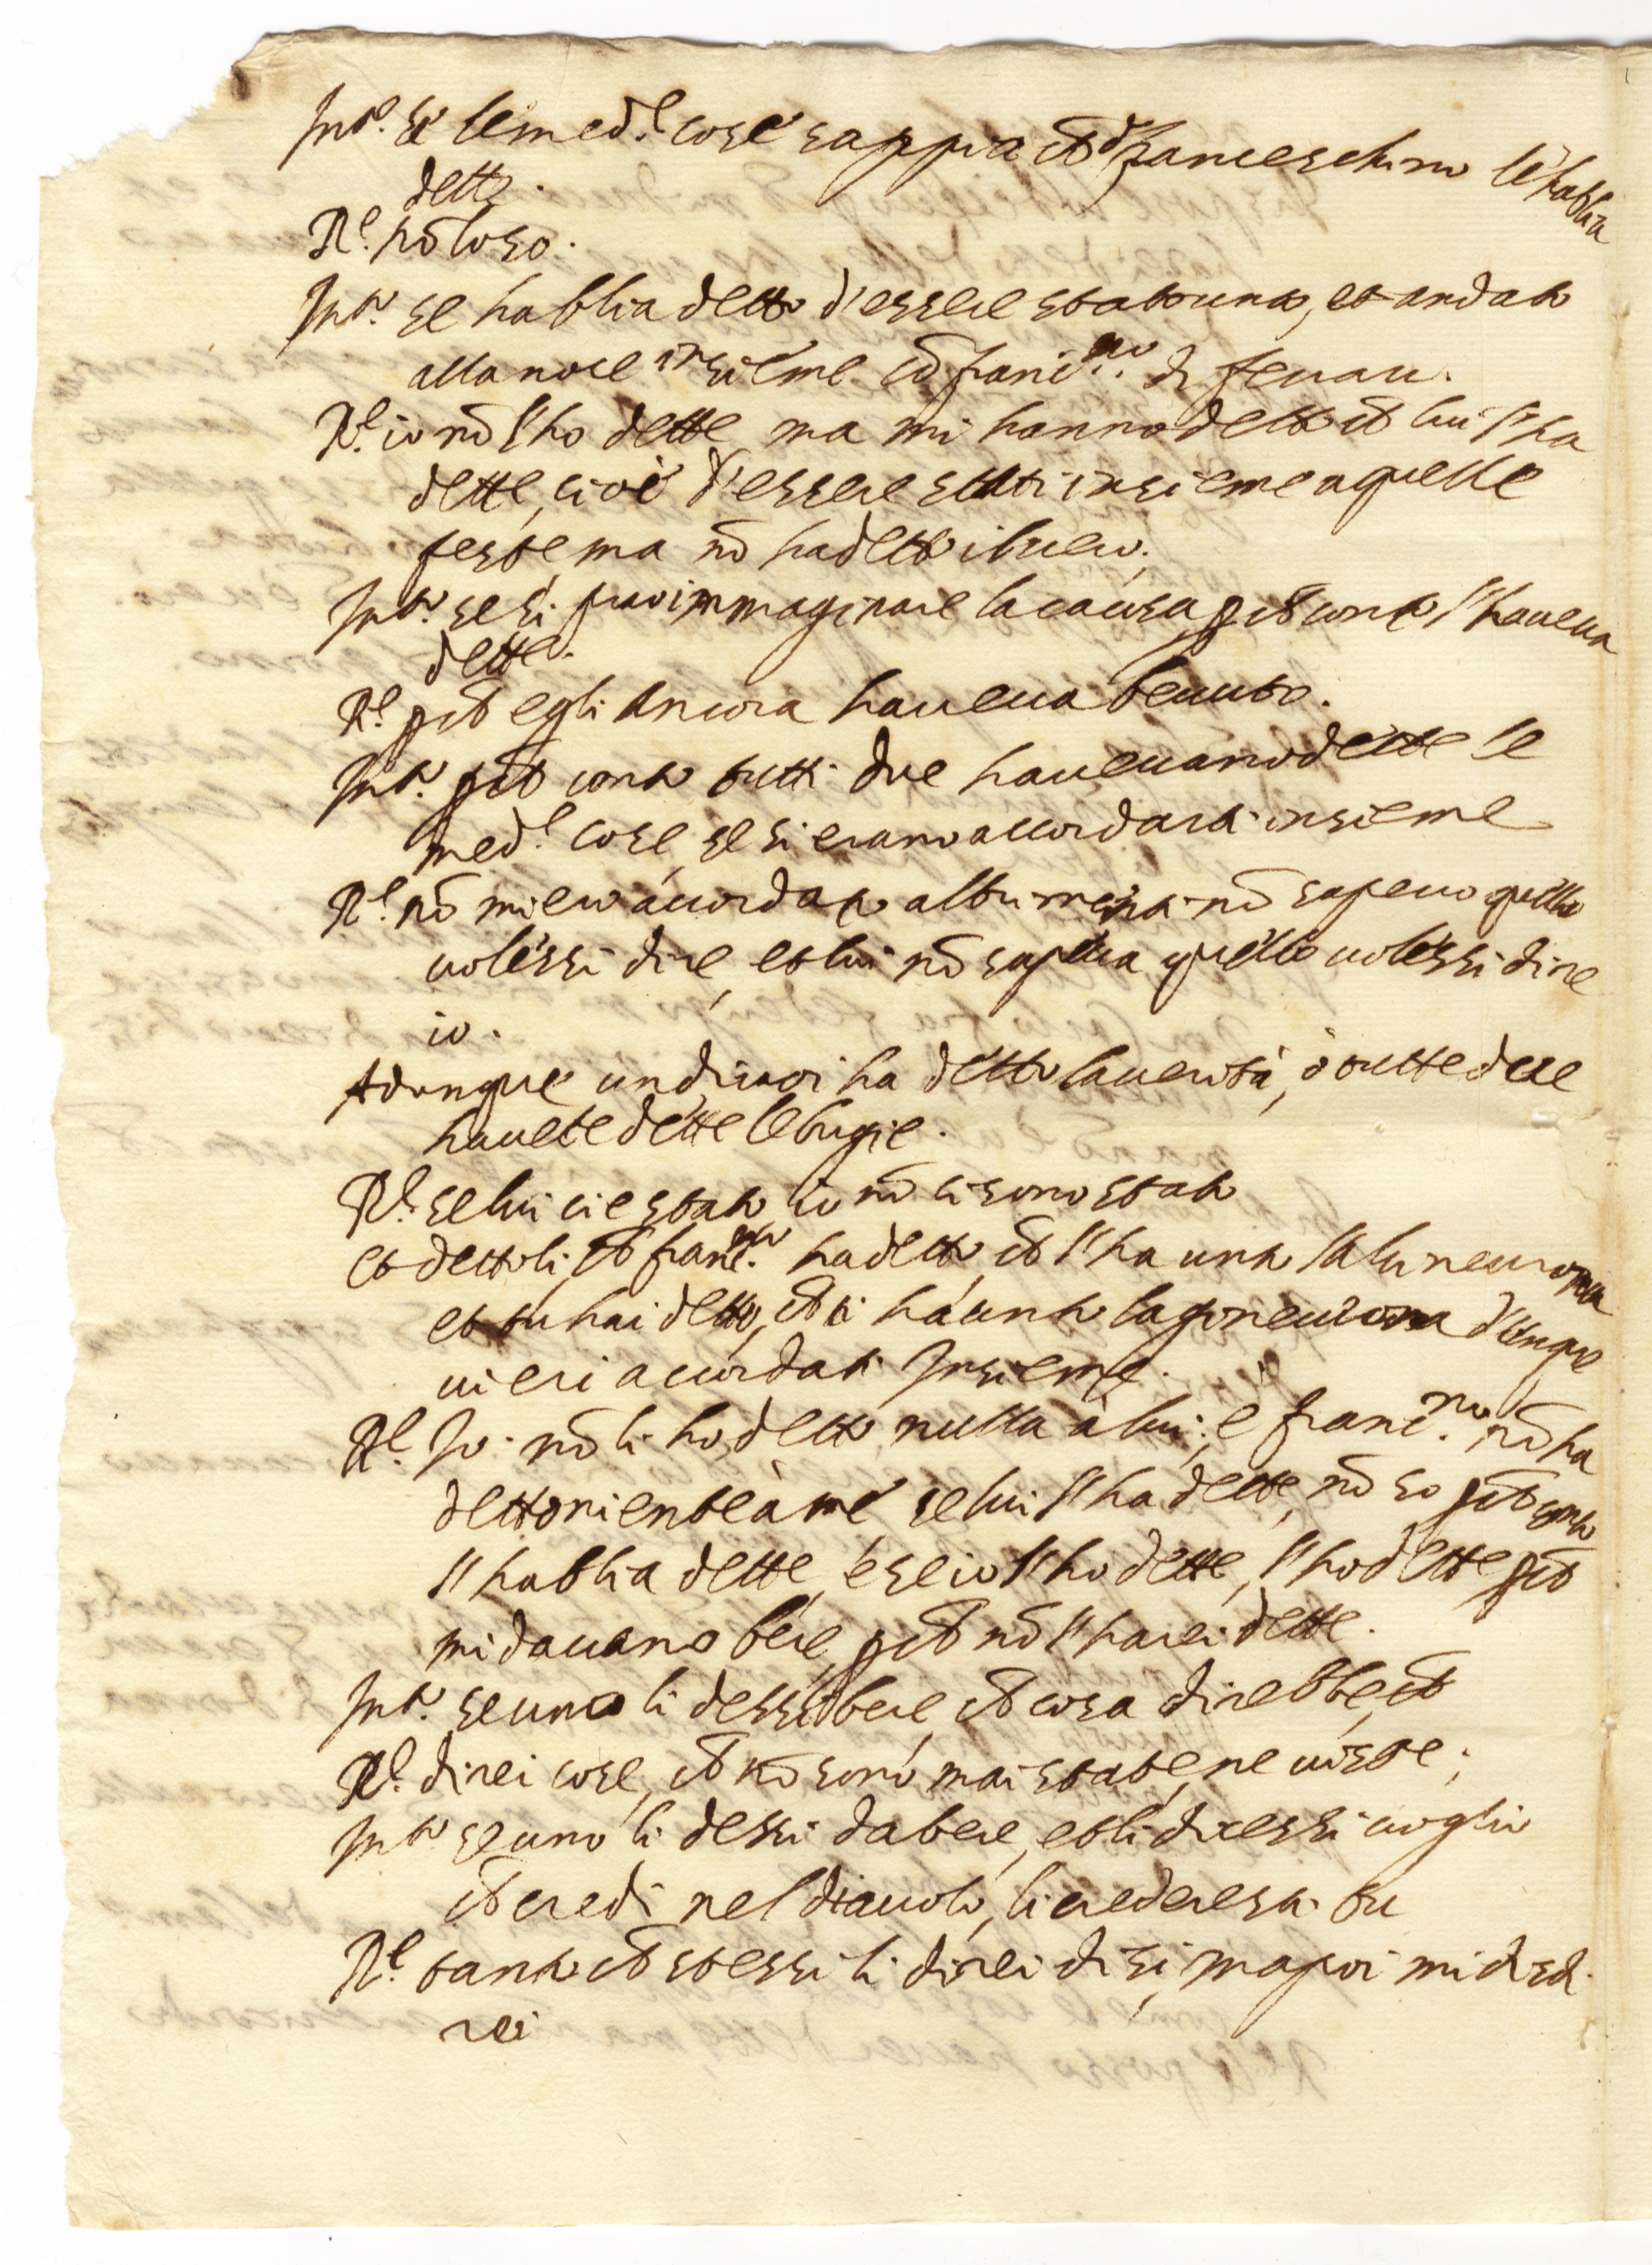 Int.o se le med.e cose sappia ch'd franceschino le habbia
dette.
R.e nõ lo so.
Int.o se habbia detto d'essere stato unto, et andato
alla noce insieme cõ franc.no di feuau.
R.e io nõ l'ho dette ma mi hanno detto ch lui l'ha
dette, cioè d'essere stati insieme a quelle
feste, ma nõ ha detto il uero.
Int.o se si puo immaginare la causa p ch conto l'haueua
dette.
R.e p ch egli ancora haueua beuuto.
Int.o p ch conto tutti due haueuano dette le
med.e cose, se si erano accordati insieme
R.e nõ mi ero accordato altrimenti nõ sapeuo quello
uolessi dire, et lui nõ sapeua quello uolessi dire
io.
Adunque un di uoi ha detto la uerità, ò tutte due
hauete dette le bugie.
R.e se lui ci è stato io nõ ci sono stato
et dettoli, ch franc.no ha detto, ch l'ha unto
et tu hai detto, ch ti há unto dunque
ui eri accordati Insieme.
R.e Io nõ li ho detto nulla à lui, e franc.no nõ ha
detto niente à me, se lui l'ha dette, nõ so p ch conto
l'habbia dette, e se io l'ho dette, l'ho dette p ch
mi dauano bere, p ch nõ l'harei dette.
Int.o se uno li dessi bere, ch cosa direbbe, ch
R.e direi cose, ch nõ sono mai state, ne uiste;
Int.o se uno li dessi da bere, et li dicessi uoglio
ch credi nel diauolo, li crederesti tu
R.e tanto ch stessi li direi di si, ma poi mi disdi
rei